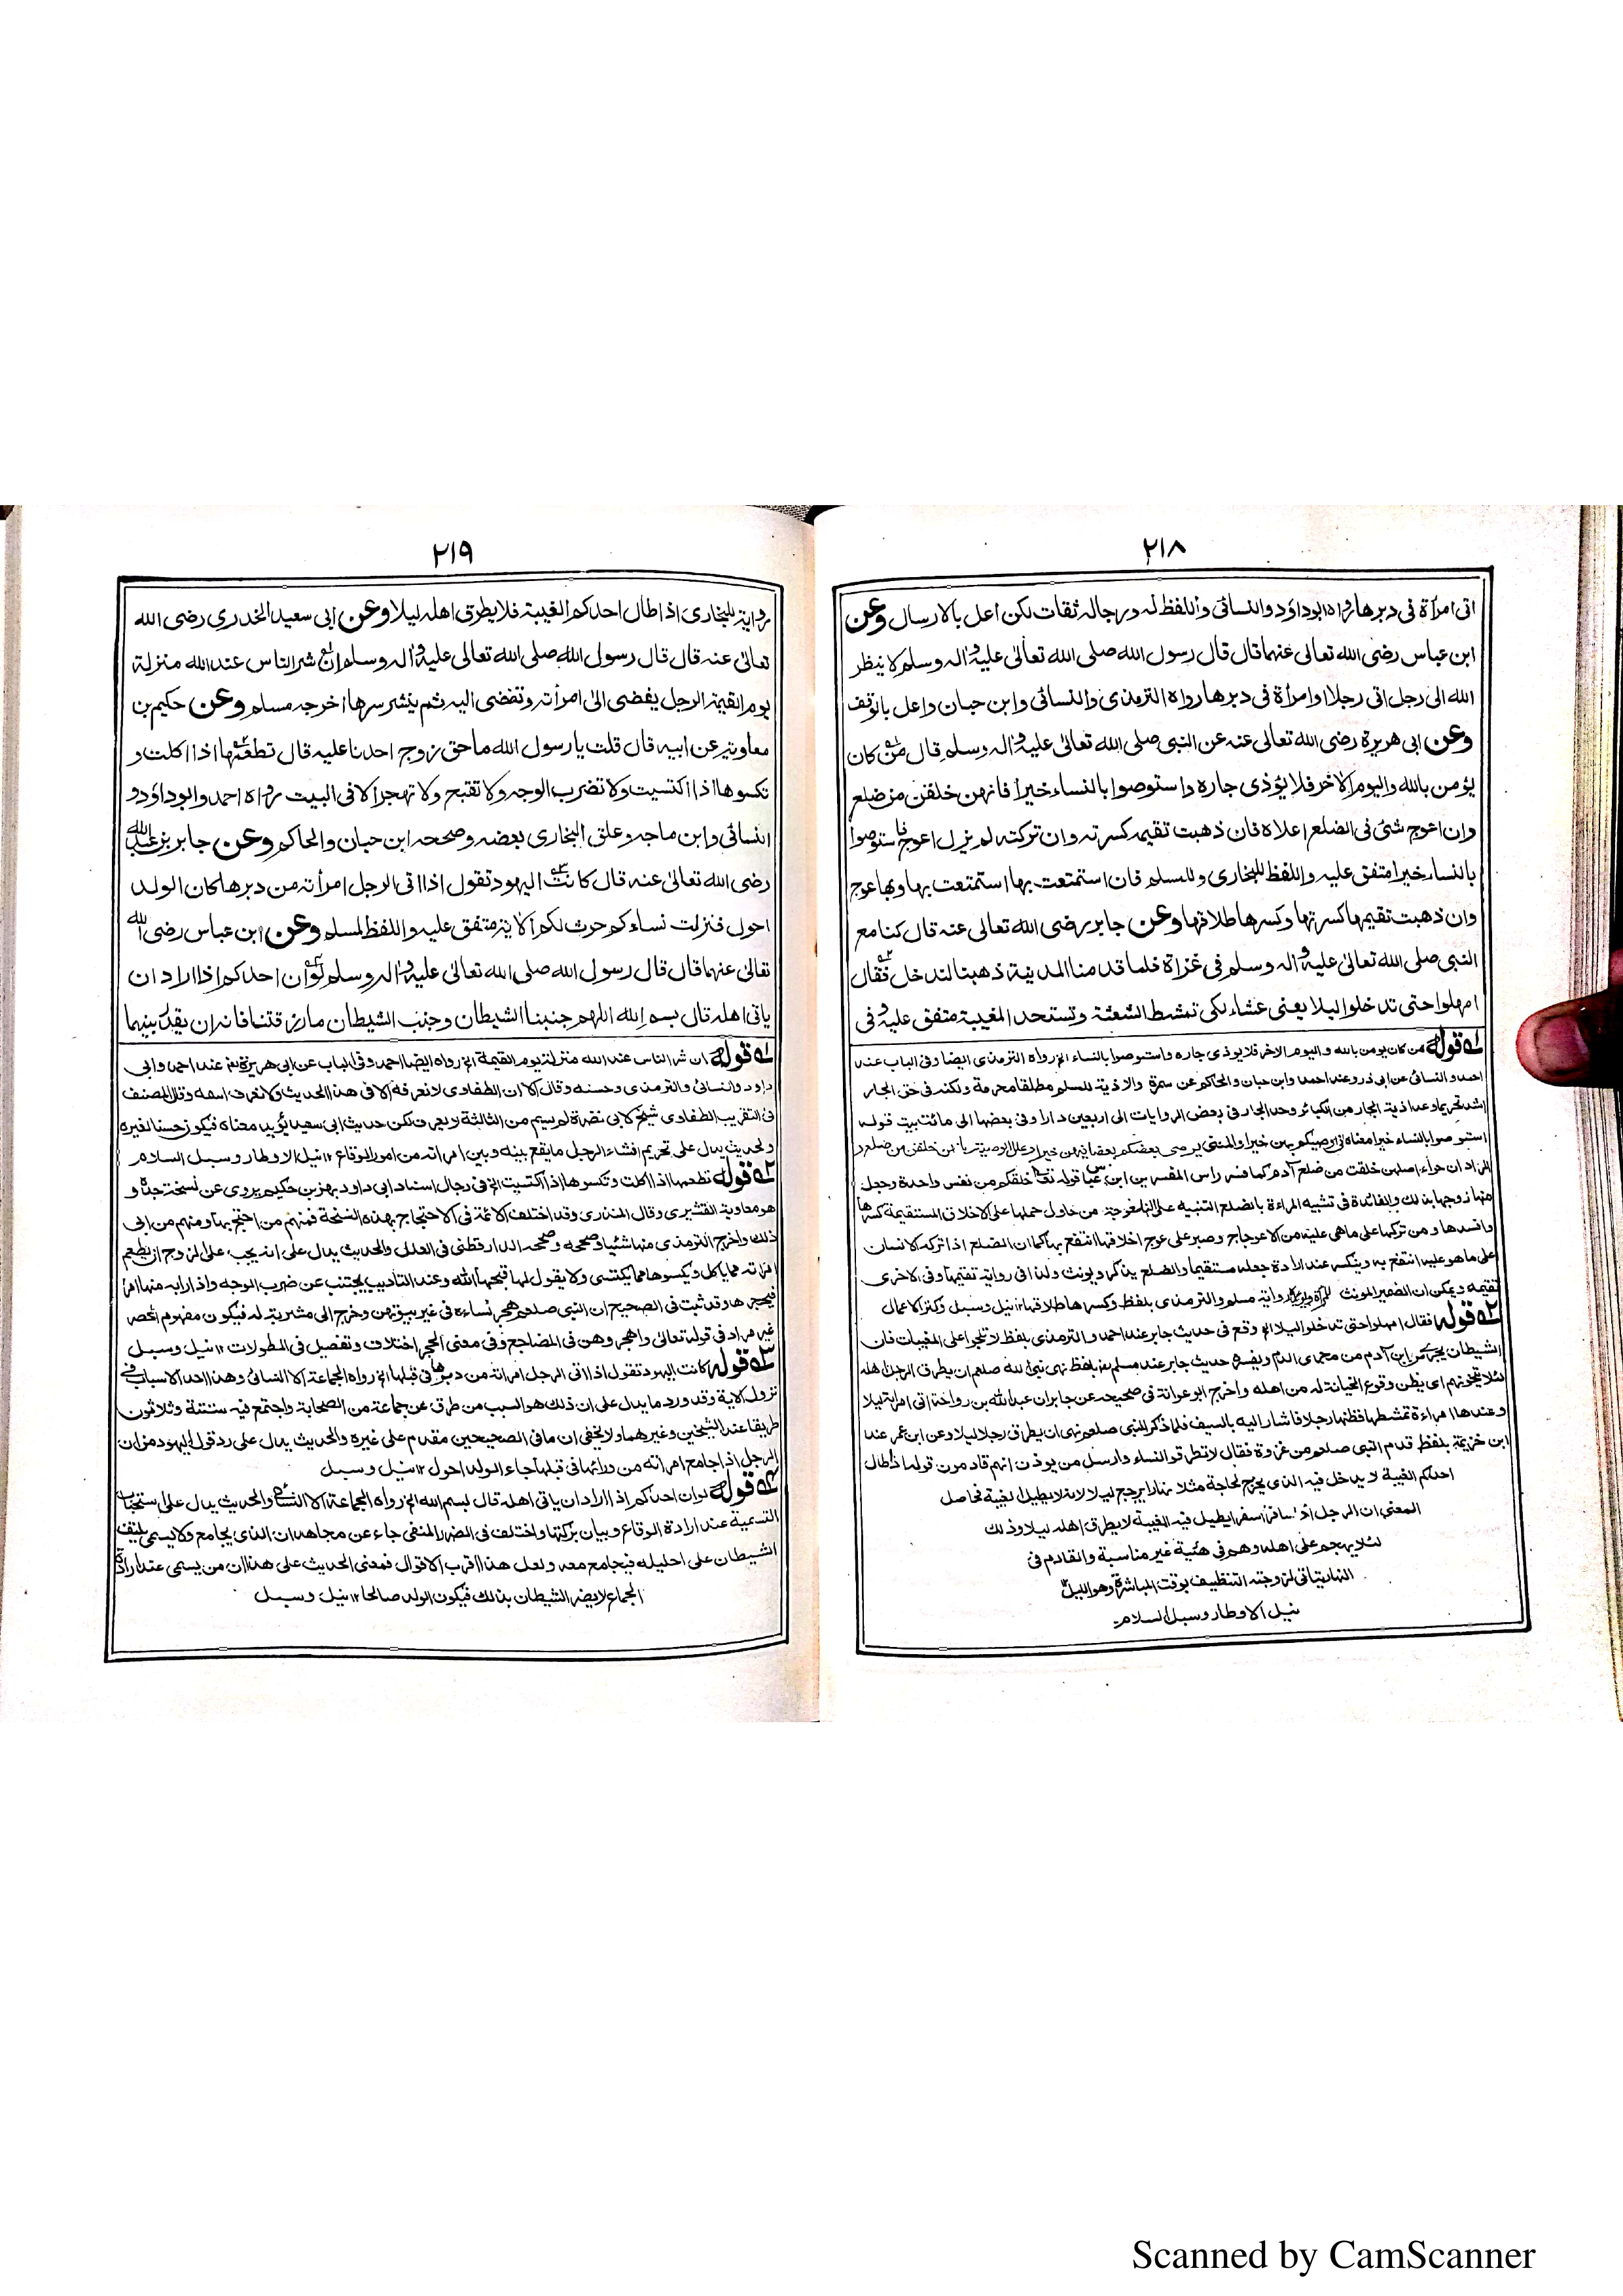 ٢١٨
اتى امرأة فى دبرها رواه ابوداؤد والنسائى واللفظ له ورجاله ثقات لكن اعل بالارسال وعن
ابن عباس رضى الله تعالى عنهما قال قال رسول الله صلى الله تعالى عليه وآله وسلم لا ينظر
الله الى رجل اتى رجلا او امرأة فى دبرها رواه الترمذى والنسائى وابن حبان واعل بالوقف
وعن ابى هريرة رضى الله تعالى عنه عن النبى صلى الله تعالى عليه وآله وسلم قال من كان
يؤمن بالله واليوم الاخر فلا يؤذى جاره واستوصوا بالنساء خيرا فانهن خلقن من ضلع
وان اعوج شئ فى الضلع اعلاه فان ذهبت تقيمه كسرته وان تركته لم يزل اعوج فاستوصوا
بالنساء خيرا متفق عليه واللفظ للبخارى ولمسلم فان استمتعت بها استمتعت بها وبها عوج
وان ذهبت تقيمها كسرتها وكسرها طلاقها وعن جابر رضى الله تعالى عنه قال كنا مع
النبى صلى الله تعالى عليه وآله وسلم فى غزاة فلما قدمنا المدينة ذهبنا لندخل فقال
امهلوا حتى تدخلوا ليلا يعنى عشاء لكى تمتشط الشعثة وتستحد المغيبة متفق عليه وفى
له قوله من كان يومن بالله واليوم الاخر فلا يوذى جاره واستوصوا بالنساء الخ رواه الترمذى ايضا وفى الباب عند
احمد والنسائى عن ابى ذر وعند احمد وابن حبان والحاكم عن سمرة والاذية للمسلم مطلقا محرمة ولكنه فى حق الجار
اشد تحريما وعد اذية الجار من الكبائر وحد الجار فى بعض الروايات الى اربعين دارا وفى بعضها الى مائت بيت قوله
استوصوا بالنساء خيرا معناه انى اوصيكم بهن خيرا والمعنى يوصى بعضكم بعضا فيهن خيرا وعلل الوصية بانهن خلقن من ضلع و
المراد ان حواء اصلهن خلقت من ضلع آدم كما فسر راس المفسرين ابن عباس قوله تعالى خلقكم من نفس واحدة وجعل
منها زوجها بذلك والفائدة فى تشبيه المراءة بالضلع التنبيه على انها معوجة من حاول حملها على الاخلاق المستقيمة كسرها
وافسدها ومن تركها على ماهى عليه من الاعوجاج وصبر على عوج اخلاقها انتفع بها كما ان الضلع اذا تركه الانسان
على ماهو عليه انتفع به وينكسر عند ارادة جعله مستقيما والضلع يذكر ويونث ولذا فى رواية تقيمها وفى الاخرى
تقيمه ويمكن ان الضمير المونث للمرأة رواية مسلم والترمذى بلفظ وكسرها طلاقها ١٢ نيل وسبل وكنز الاعمال
٢ه قوله فقال امهلوا حتى تدخلوا ليلا الخ وقع فى حديث جابر عند احمد والترمذى بلفظ لا تلجوا على المغيبات فان
الشيطان يجرى من ابن آدم من مجرى الدم ويفسره حديث جابر عند مسلم بلفظ نهى نبى الله صلعم ان يطرق الرجل اهله
لئلا يتخونهم اى يظن وقوع الخيانة له من اهله واخرج ابوعوانة فى صحيحه عن جابر ان عبدالله بن رواحة اتى امراته ليلا
وعندها امراءة تمشطها فظنها رجلا فاشار اليه بالسيف فلما ذكر للنبى صلعم نهى ان يطرق رجلا ليلا وعن ابن عمر عند
ابن خزيمة بلفظ قدم النبى صلعم من غزوة فقال لا تطرقوا النساء وارسل من يوذن انهم قادمون قوله اذا طال
احدكم الغيبة لا يدخل فيه الذى يخرج لحاجة مثلا نهارا يرجع ليلا لانه لا يطيل الغيبة فحاصل
المعنى ان الرجل اذا سافر اسفرا يطيل فيه الغيبة لا يطرق اهله ليلا وذلك
لئلا يهجم على اهله وهم فى هئية غير مناسبة والقادم فى
النهار يتأتى لزوجته التنظيف لوقت المباشرة وهو الليل
نيل الاوطار وسبل السلام
٢١٩
رواية للبخارى اذا طال احدكم الغيبة فلا يطرق اهله ليلا وعن ابى سعيد الخدرى رضى الله
تعالى عنه قال قال رسول الله صلى الله تعالى عليه وآله وسلم ان شر الناس عند الله منزلة
يوم القيمة الرجل يفضى الى امرأته وتفضى اليه ثم ينشر سرها اخرجه مسلم وعن حكيم بن
معاوية عن ابيه قال قلت يا رسول الله ما حق زوج احدنا عليه قال تطعمها اذا اكلت و
تكسوها اذا اكتسيت ولا تضرب الوجه ولا تقبح ولا تهجر الا فى البيت رواه احمد وابوداؤد و
النسائى وابن ماجه وعلق البخارى بعضه وصححه ابن حبان والحاكم وعن جابر بن عبدالله
رضى الله تعالى عنه قال كانت اليهود تقول اذا اتى الرجل امرأته من دبرها كان الولد
احول فنزلت نساءكم حرث لكم الاية متفق عليه واللفظ لمسلم وعن ابن عباس رضى الله
تعالى عنهما قال قال رسول الله صلى الله تعالى عليه وآله وسلم لو ان احدكم اذا اراد ان
ياتى اهله قال بسم الله اللهم جنبنا الشيطان وجنب الشيطان ما رزقتنا فانه ان يقدر بينهما
له قوله ان شر الناس عند الله منزلة يوم القيمة الخ رواه ايضا احمد وفى الباب عن ابى هريرة عند احمد وابى
داود والنسائى والترمذى وحسنه وقال الا ان الطفاوى لا نعرفه الا فى هذا الحديث ولا نعرف اسمه وقال المصنف
فى التقريب الطفاوى شيخ لابى نضرة لم يسم من الثالثة لا يعرف لكن حديث ابى سعيد يؤيد معناه فيكون حسنا لغيره
والحديث يدل على تحريم افشاء الرجل ما يقع بينه وبين امراته من امور الوقاع ١٢ نيل الاوطار وسبل السلام
٢ه قوله تطعمها اذا اكلت وتكسوها اذا اكتسيت الخ فى رجال اسناد ابى داود بهز بن حكيم يروى عن نسخة جدا و
هو معاوية القشيرى وقال المنذرى وقد اختلف الائمة فى الاحتجاج بهذه النسخة فمنهم من احتج بها ومنهم من ابى
ذلك واخرج الترمذى منها شيئا وصححه وصححه الدارقطنى فى العلل والحديث يدل على انه يجب على الزوج ان يطعم
امراته مما ياكل ويكسوها مما يكتسى ولا يقول لها قبحها الله وعند التأديب يجتنب عن ضرب الوجه واذا رابه منها امر
فيهجرها وقد ثبت فى الصحيح ان النبى صلعم هجر نساءه فى غير بيوتهن وخرج الى مشربة له فيكون مفهوم الحصر
غير مراد فى قوله تعالى واهجروهن فى المضاجع وفى معنى الهجر اختلاف وتفصيل فى المطولات ١٢ نيل وسبل
٣ه قوله كانت اليهود تقول اذا اتى الرجل امراته من دبرها فى قبلها الخ رواه الجماعة الا النسائى وهذا احد الاسباب فى
نزول الاية وقد ورد ما يدل على ان ذلك هو السبب من طرق عن جماعة من الصحابة واجتمع فيه ستة وثلاثون
طريقا عند الشيخين وغيرهما ولا يخفى ان ما فى الصحيحين مقدم على غيره والحديث يدل على رد قول اليهود من ان
الرجل اذا جامع امراته من ورائها فى قبلها جاء الولد احول ١٢ نيل وسبل
٤ه قوله لو ان احدكم اذا اراد ان ياتى اهله قال بسم الله الخ رواه الجماعة الا النسائى والحديث يدل على استحباب
التسمية عند ارادة الوقاع وبيان بركتها واختلف فى الضرر المنفى جاء عن مجاهد ان الذى يجامع ولا يسمى يلتف
الشيطان على احليله فيجامع معه ولعل هذا اقرب الاقوال فمعنى الحديث على هذا ان من يسمى عند ارادة
الجماع لا يضر الشيطان بذلك فيكون الولد صالحا ١٢ نيل وسبل
Scanned by CamScanner